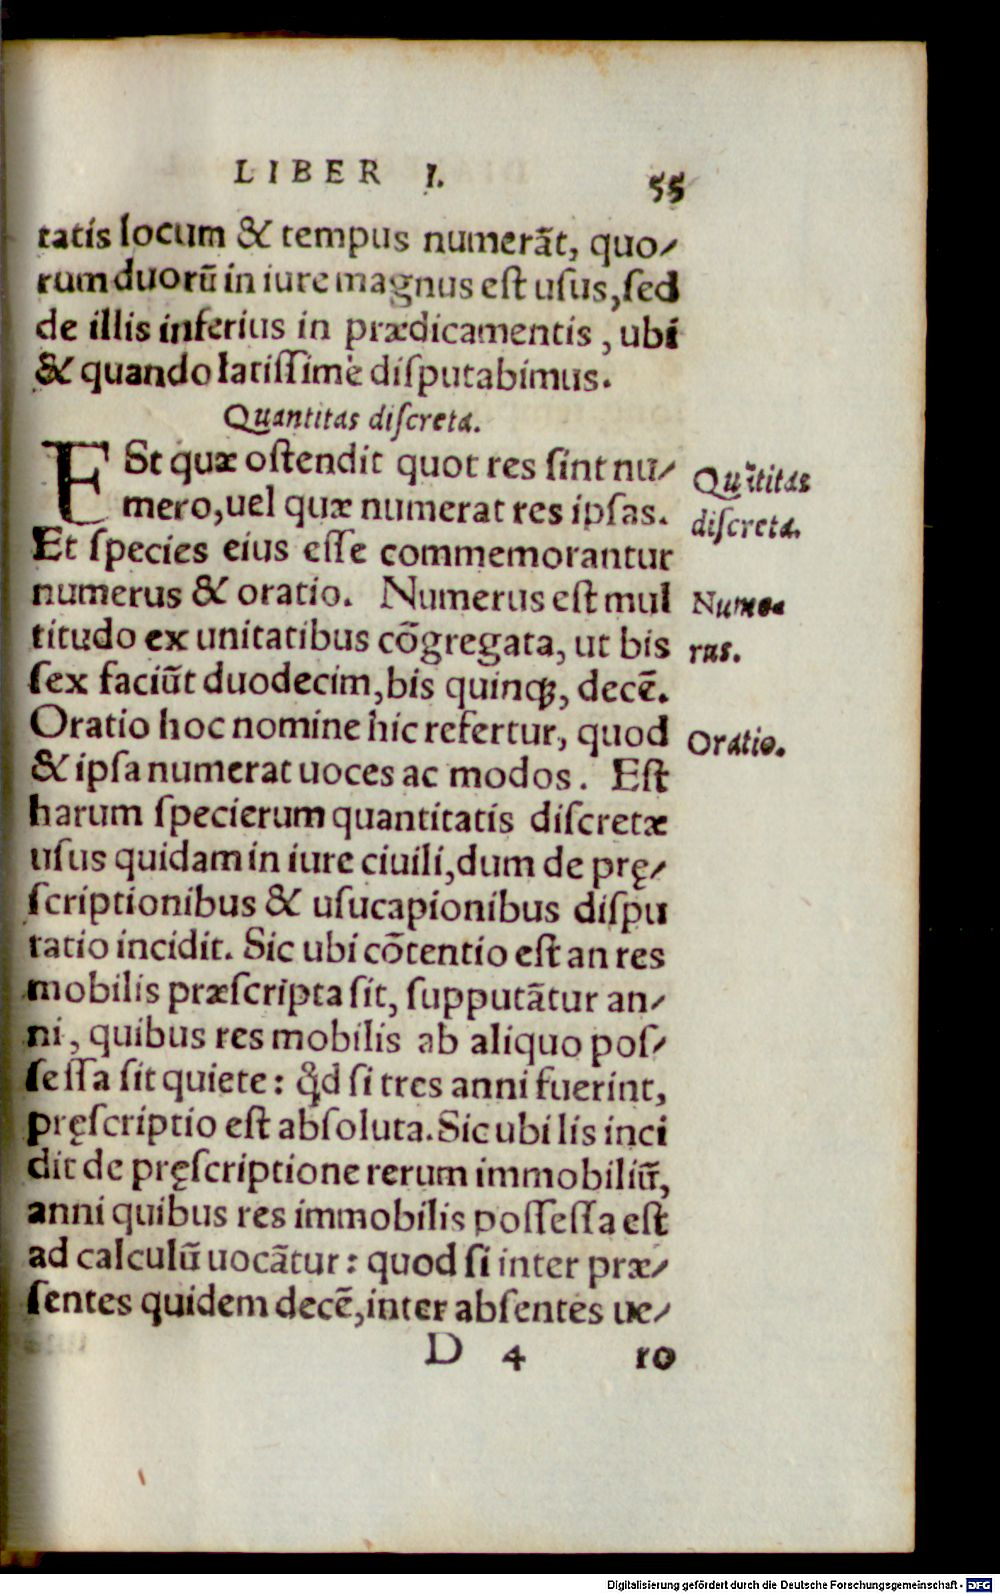 LIBER I. 55
tatis locum & tempus numerãt, quo-
rum duorũ in iure magnus est usus, sed
de illis inferius in prædicamentis, ubi
& quando latissimè disputabimus.
Quantitas discreta.
ESt quæ ostendit quot res sint nu-
mero, uel quæ numerat res ipsas.
Quãtitas
discreta.
Et species eius esse commemorantur
numerus & oratio. Numerus est mul
titudo ex unitatibus cõgregata, ut bis
Nume-
rus.
sex faciũt duodecim, bis quinqꝫ, decẽ.
Oratio hoc nomine hic refertur, quod
Oratio.
& ipsa numerat uoces ac modos. Est
harum specierum quantitatis discretæ
usus quidam in iure ciuili, dum de prę-
scriptionibus & usucapionibus dispu
tatio incidit. Sic ubi cõtentio est an res
mobilis præscripta sit, supputãtur an-
ni, quibus res mobilis ab aliquo pos-
sessa sit quiete: ꝙd si tres anni fuerint,
pręscriptio est absoluta. Sic ubi lis inci
dit de pręscriptione rerum immobiliũ,
anni quibus res immobilis possessa est
ad calculũ uocãtur: quod si inter præ-
sentes quidem decẽ, inter absentes ue-
D 4 ro
Digitalisierung gefördert durch die Deutsche Forschungsgemeinschaft - DFG